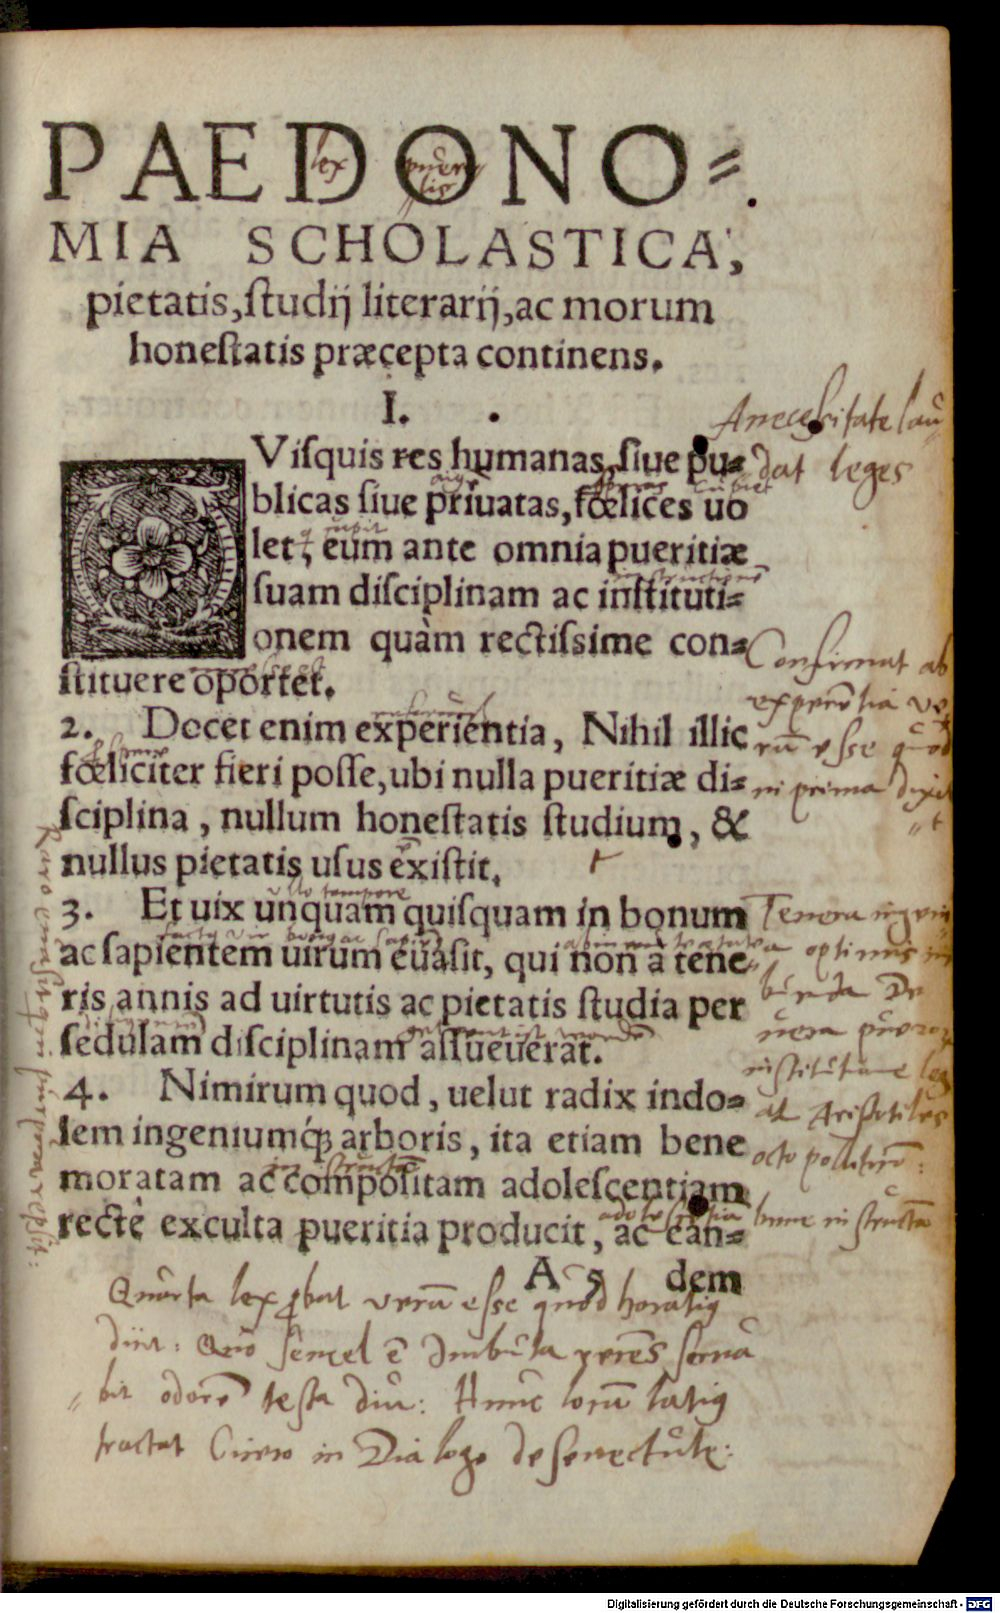 PAEDONO=
lex pueri
lis
MIA SCHOLASTICA,
pietatis, ſtudij literarij, ac morum
honeſtatis præcepta continens.
I.
QViſquis res humanas, ſiue pu=
blicas ſiue priuatas, fœlices uo
let, eum ante omnia pueritiæ
ſuam diſciplinam ac inſtituti=
onem quàm rectiſsime con=
ſtituere oportet.
2. Docet enim experientia, Nihil illic
fœliciter fieri poſſe, ubi nulla pueritiæ di=
ſciplina, nullum honeſtatis ſtudium, &
nullus pietatis uſus exiſtit.
ullo tempore
3. Et uix unquam quiſquam in bonum
ac ſapientem uirum euaſit, qui non à tene
ris annis ad uirtutis ac pietatis ſtudia per
ſedulam diſciplinam aſſueuerat.
4. Nimirum quod, uelut radix indo=
lem ingeniumq́; arboris, ita etiam bene
moratam ac compoſitam adoleſcentiam
adoleſcentia
recte exculta pueritia producit, ac ean=
A 5 dem
A neceſsitate lau
dat leges
Confirmat ab
experiẽtia ve
rũ eſſe quod
in prima dixit
Tenera ingeni
a optimis im
buenda
uera pueror
inſtitutione leg
at Ariſtotiles
octo politicorũ:
Quarta lex ꝓbat verũ eſſe quod horatiꝯ
dixit: Quo ſemel ẽ Imbuta recẽs ſerua
bit odorẽ teſta diu: Hunc locũ latiꝯ
tractat Cicero in Dialogo de ſenectute: